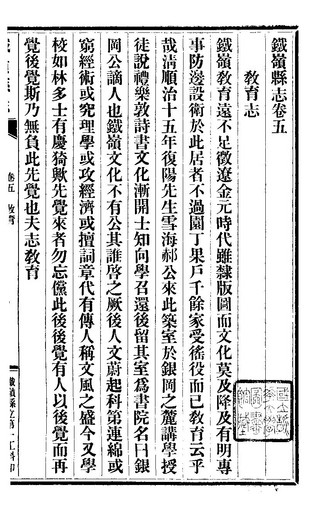 鐵嶺縣志卷五
教育志
鐵嶺教育遠不足徵遼金元時代雖隸版圖而文化莫及降及有明專
事防邊設衛於此居者不過園丁果戶千餘家受徭役而已教育云乎
哉清順治十五年復陽先生雪海郝公來此築室於銀岡之麓講學授
徒說禮樂敦詩書文化漸開士知向學召還後留其室爲書院名曰銀
岡公謫人也鐵嶺文化不有公其誰啓之厥後人文蔚起科第連綿或
窮經術或究理學或攻經濟或擅詞章代有傳人稱文風之盛今又學
校如林多士有慶猗歟先覺來者勿忘儻此後後覺有人以後覺而再
覺後覺斯乃無負此先覺也夫志教育
卷五 教育